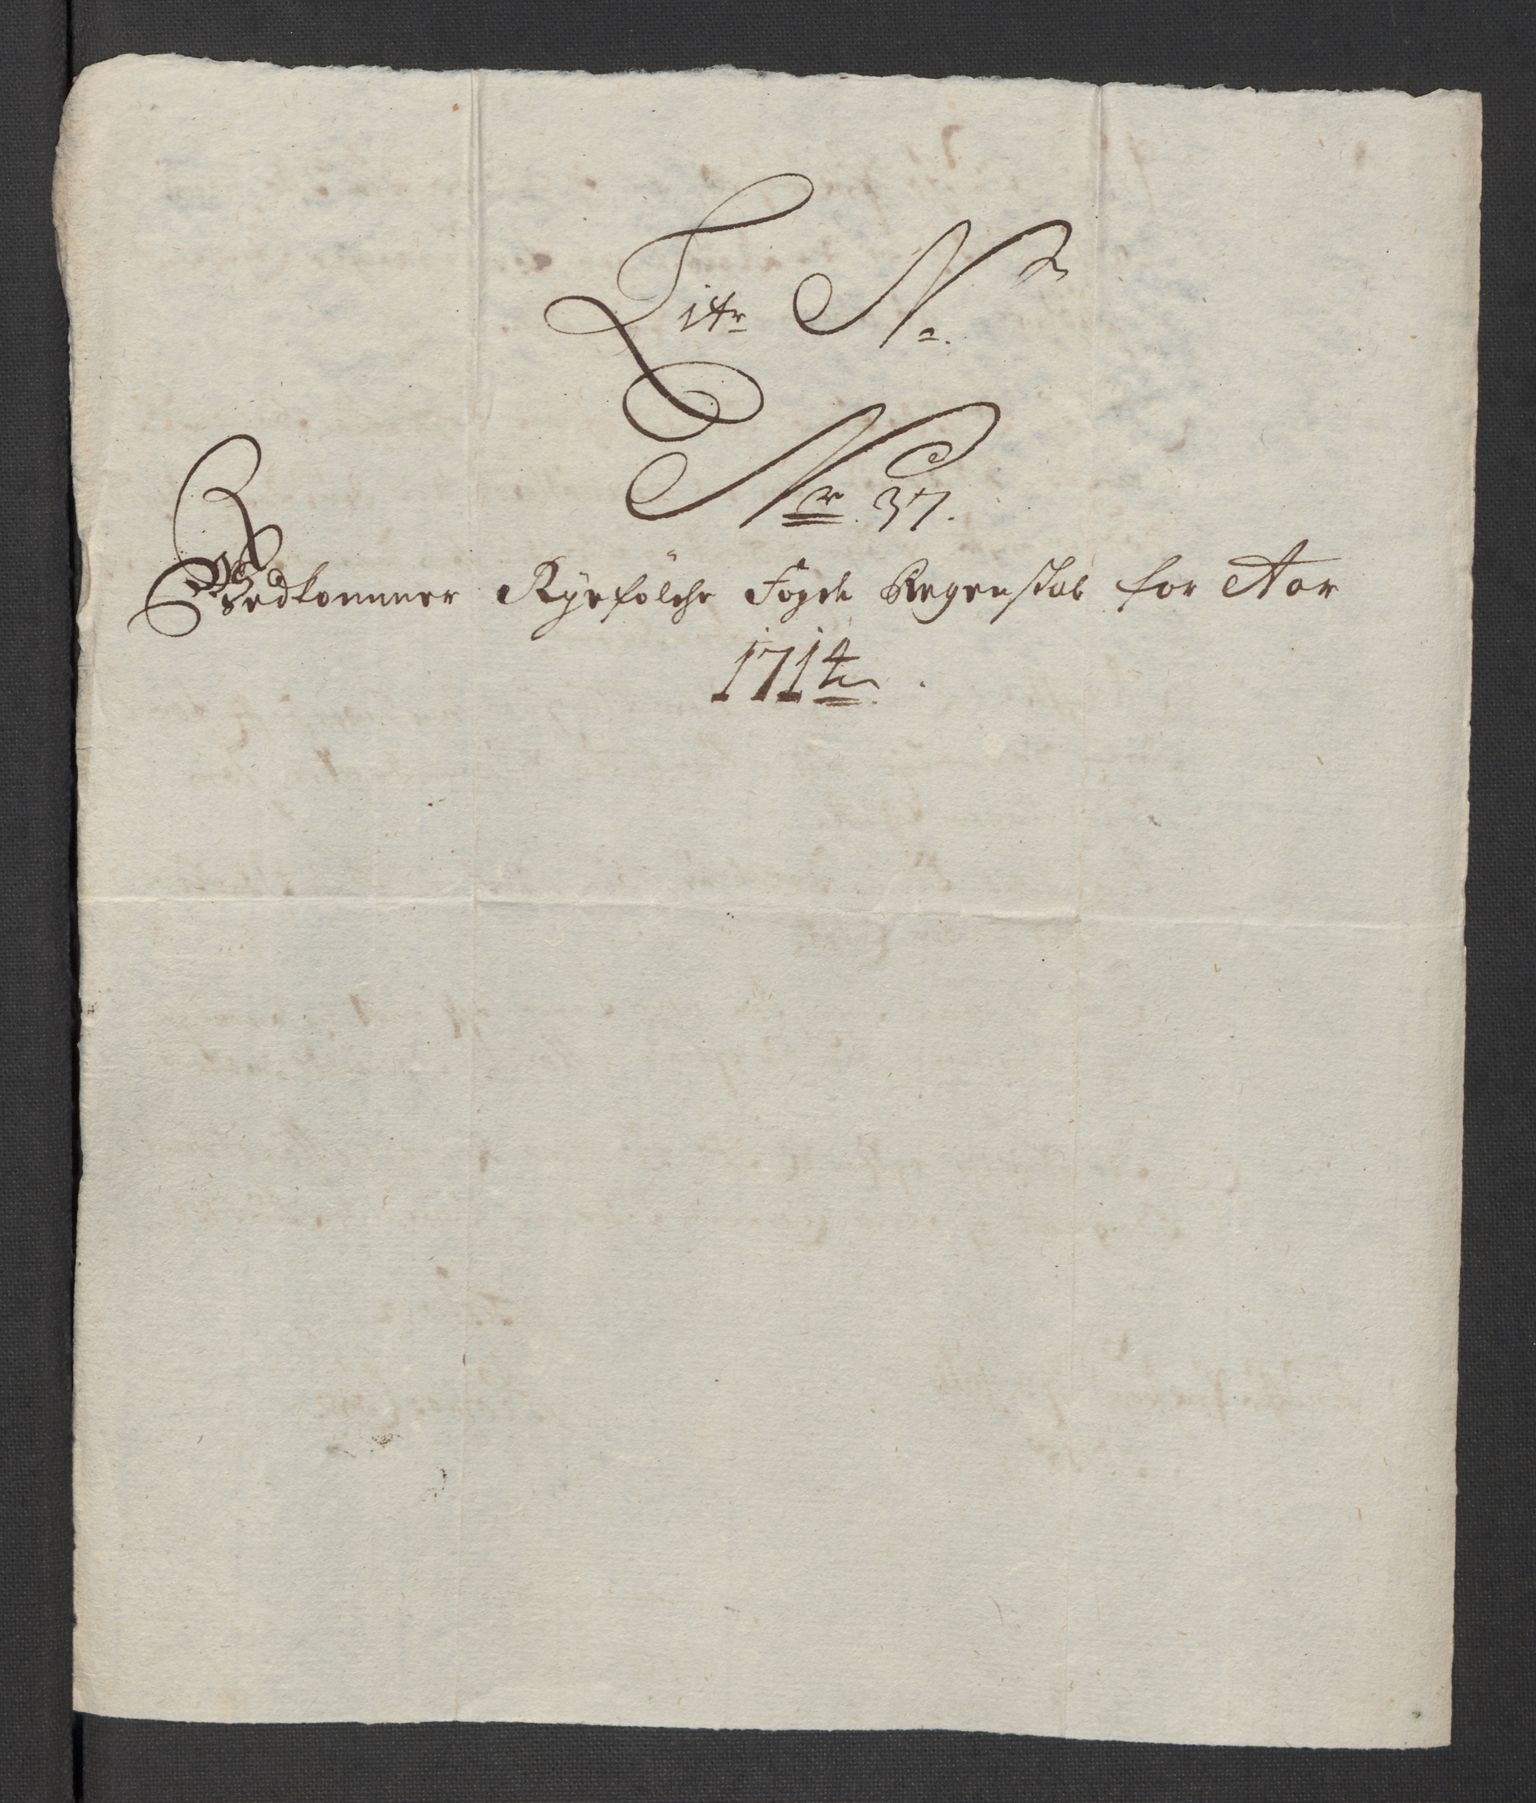 Litr N.
Nr. 37.
Vedkommer Ryefölche Fogde Regenskab for Aar
1714